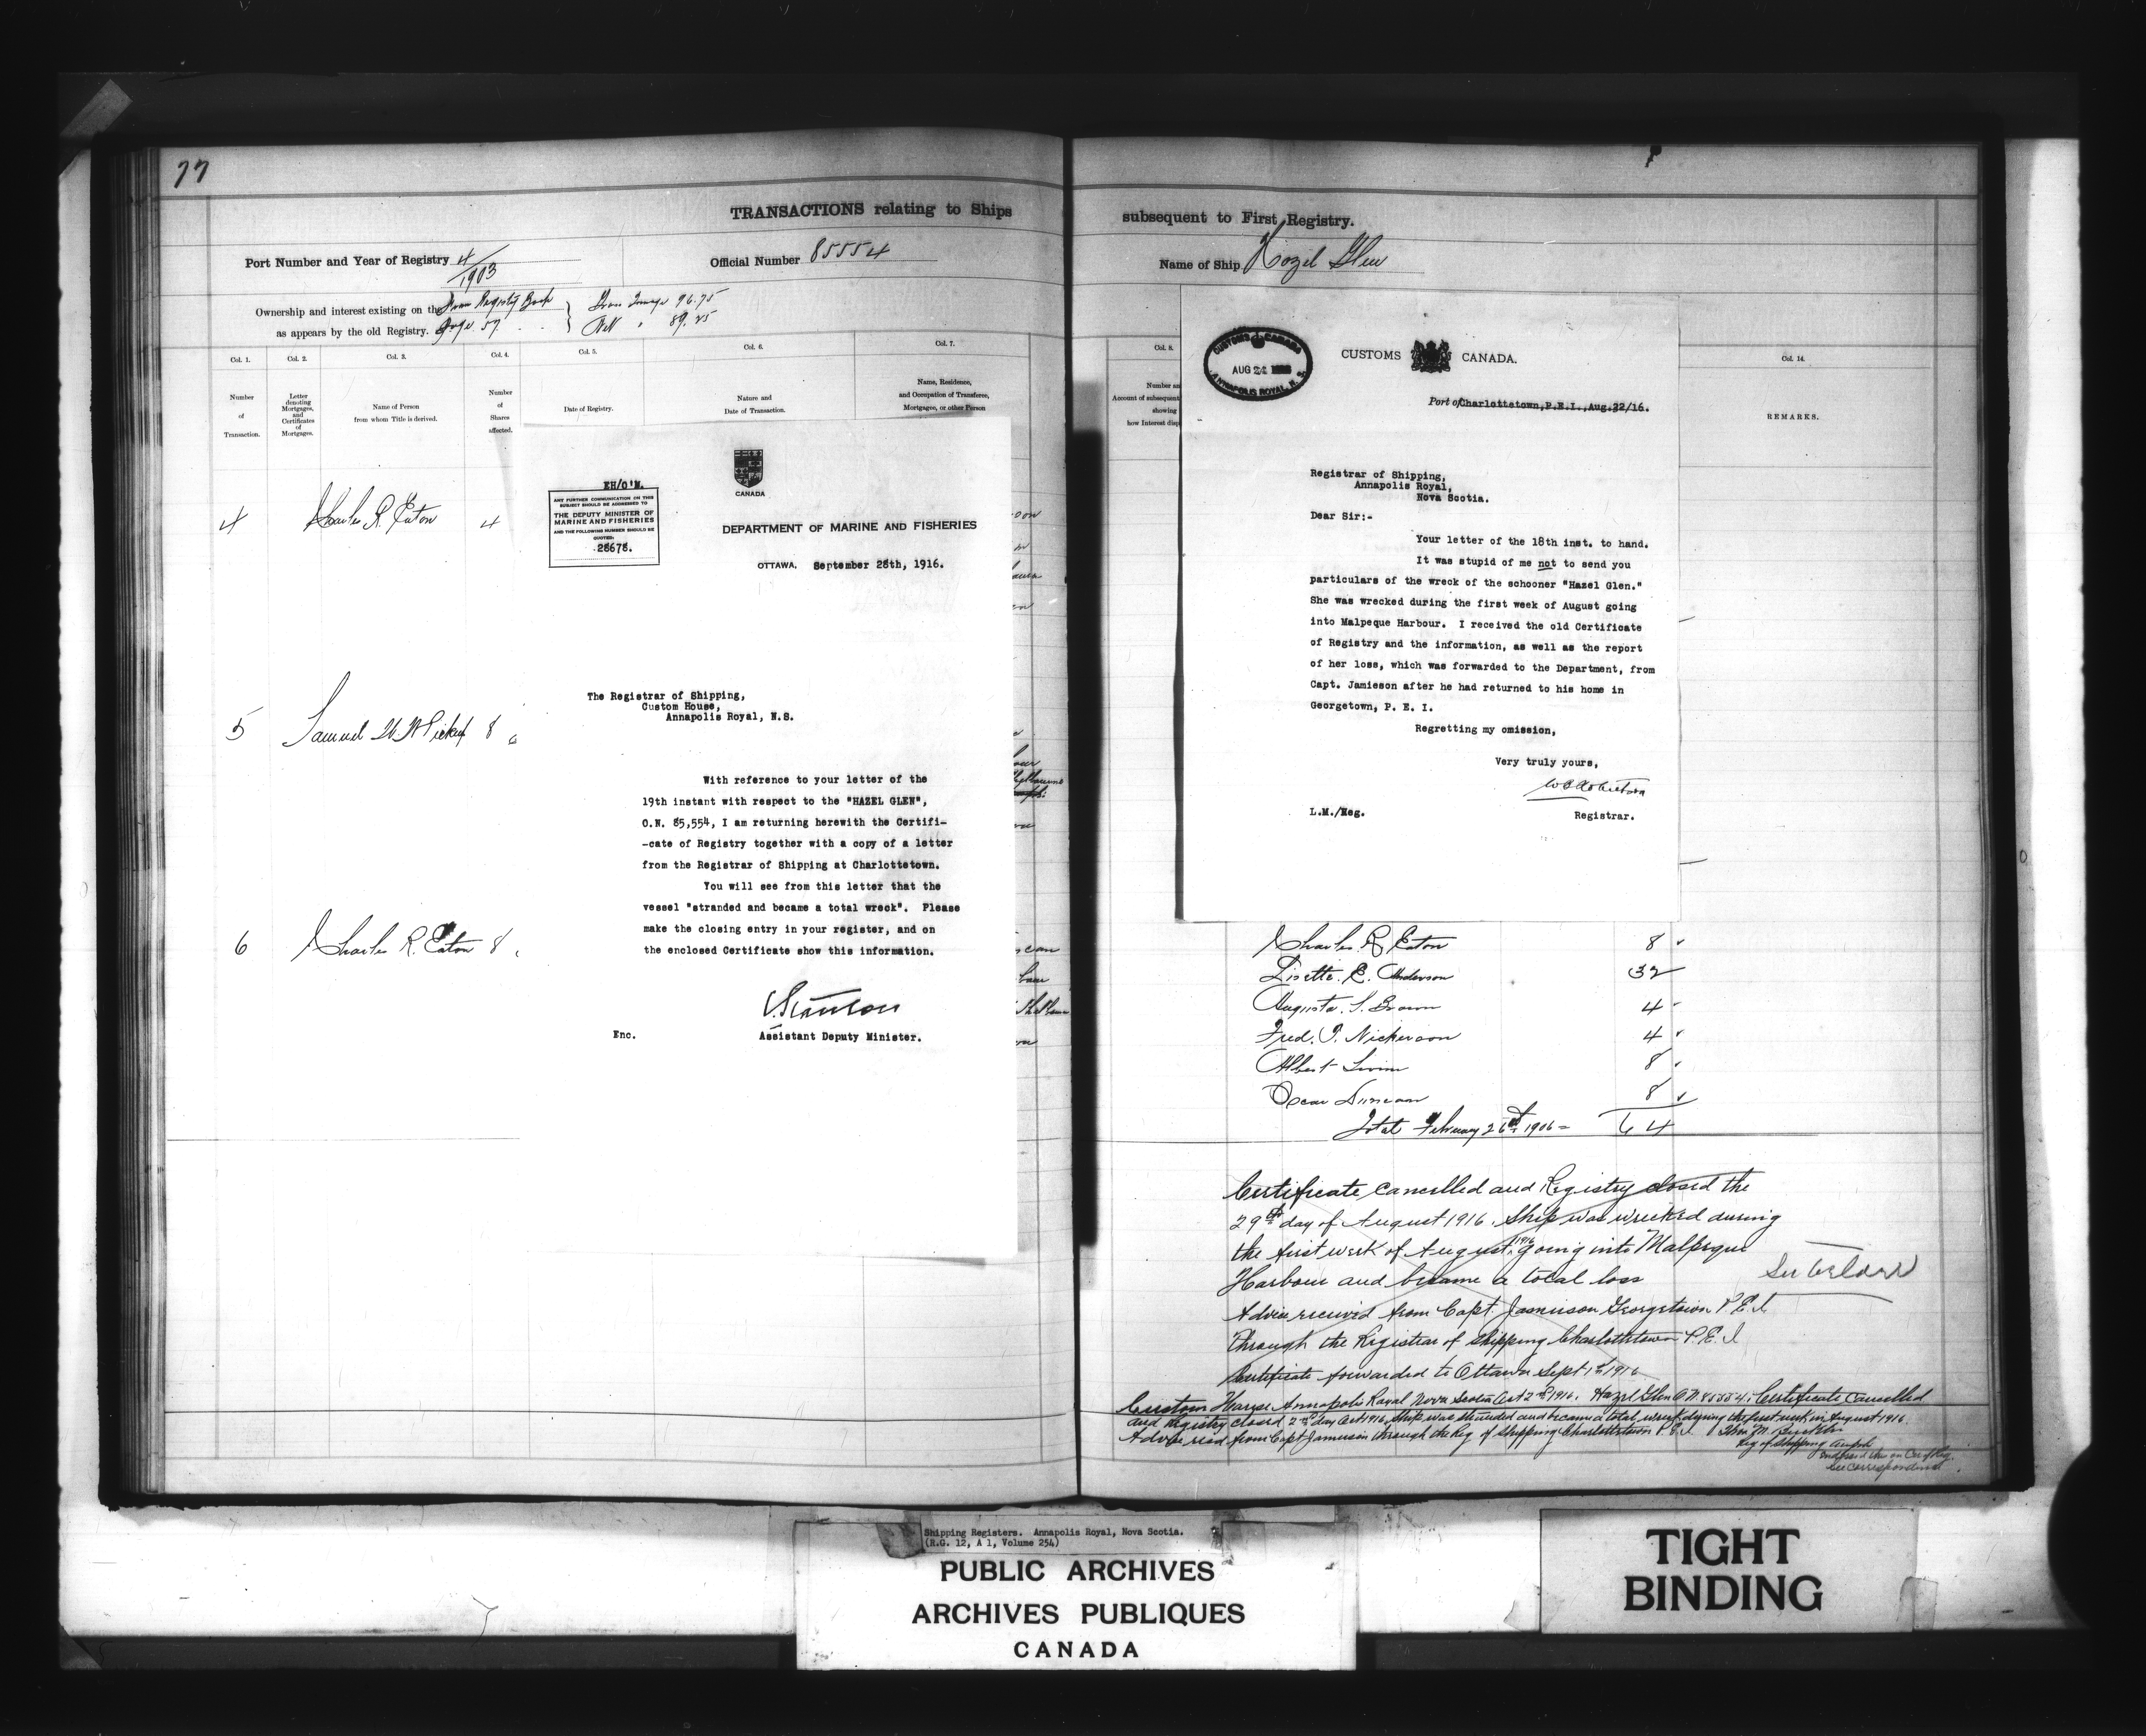 77
TRANSACTIONS relating to Ships
Port Number and Year of Registry 4/1903
Official Number 85554
Ownership and interest existing on the From Registry Book
as appears by the old Registry. Page 57
Gross Tonnage 96.75
Nett " 89.25
Col. 1.
Col. 2.
Col. 3.
Col. 4.
Col. 5.
Col. 6.
Col. 7.
Number of Transaction.
Letter denoting Mortgages, and Certificates of Mortgages.
Name of Person from whom Title is derived.
Number of Shares affected.
Date of Registry.
Nature and Date of Transaction.
Name, Residence, and Occupation of Transferee, Mortgagee, or other Person
4 Charles R. Eaton 4
5 Samuel W. W. Pickup 8
6 Charles R. Eaton 8
EH/O'M.
ANY FURTHER COMMUNICATION ON THIS
SUBJECT SHOULD BE ADDRESSED TO
THE DEPUTY MINISTER OF
MARINE AND FISHERIES
AND THE FOLLOWING NUMBER SHOULD BE
QUOTED:
28678.
CANADA
DEPARTMENT OF MARINE AND FISHERIES
OTTAWA, September 28th, 1916.
The Registrar of Shipping,
Custom House,
Annapolis Royal, N.S.
With reference to your letter of the
19th instant with respect to the "HAZEL GLEN",
O.N. 85,554, I am returning herewith the Certifi-
-cate of Registry together with a copy of a letter
from the Registrar of Shipping at Charlottetown.
You will see from this letter that the
vessel "stranded and became a total wreck". Please
make the closing entry in your register, and on
the enclosed Certificate show this information.
Enc.
Assistant Deputy Minister.
subsequent to First Registry.
Name of Ship Hazel Glen
Col. 8.
Number an
Account of subsequent
showing
how Interest disp
Col. 14.
REMARKS.
CUSTOMS CANADA
AUG 24
ANNAPOLIS ROYAL, N. S.
CUSTOMS CANADA.
Port of Charlottetown,P.E.I.,Aug.22/16.
Registrar of Shipping,
Annapolis Royal,
Nova Scotia.
Dear Sir:-
Your letter of the 18th inst. to hand.
It was stupid of me not to send you
particulars of the wreck of the schooner "Hazel Glen."
She was wrecked during the first week of August going
into Malpeque Harbour. I received the old Certificate
of Registry and the information, as well as the report
of her loss, which was forwarded to the Department, from
Capt. Jamieson after he had returned to his home in
Georgetown, P. E. I.
Regretting my omission,
Very truly yours,
L.M./Meg.
Registrar.
Charles R Eaton 8
Lisette. E. Anderson 32
Augusta. S. Brown 4
Fred. T. Nickerson 4
Albert 8
Oscar Duncan 8
Total February 26th 1906 = 64
Certificate cancelled and Registry closed the
29th day of August 1916. Ship was wrecked during
the first week of August, 1916 going into Malpeque
Harbour and became a total loss
Advice received from Capt. Jamieson Georgetown P.E.I.
through the Registrar of Shipping Charlottetown P.E.I
Certificate forwarded to Ottawa Sept 1st 1916
See below
Custom House Annapolis Royal Nova Scotia Oct 2nd 1916. Hazel Glen O.N. 85554. Certificate Cancelled
and Registry closed 2nd day Oct 1916, Ship was stranded and became a total wreck during the first week in August 1916.
Advice recd from Capt Jamieson through the Reg of Shipping Charlottetown P.E.I.
Reg of Shipping
See correspondence
Shipping Registers. Annapolis Royal, Nova Scotia.
(R.G. 12, A 1, Volume 254)
PUBLIC ARCHIVES
ARCHIVES PUBLIQUES
CANADA
TIGHT
BINDING